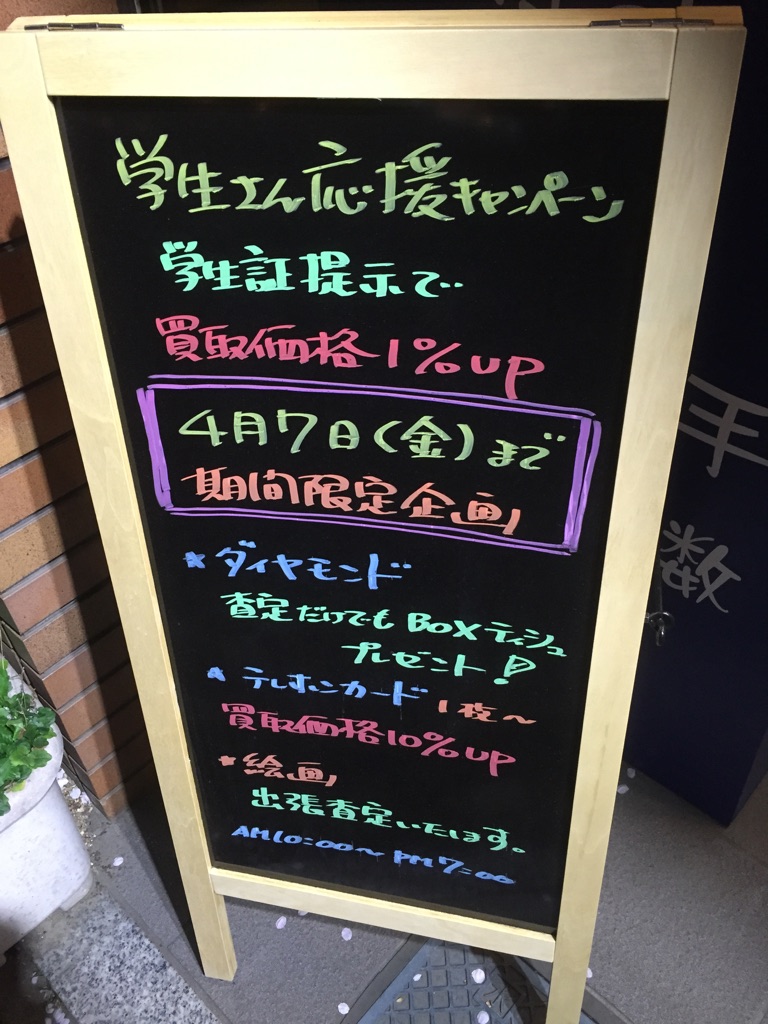 学生さん応援キャンペーン
学生証提示で
買取価格1%UP
4月7日(金)まで
期間限定企画
★ダイヤモンド
査定だけでもBOXティシュ
プレゼント!
★テレホンカード 1枚~
買取価格10%UP
★絵画
出張査定いたします。
AM10:00~PM7:00
手
数